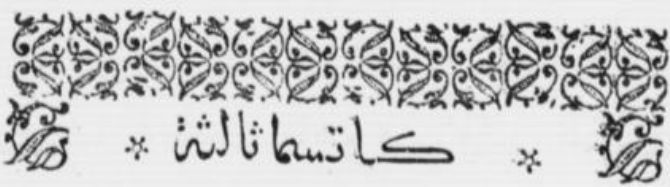 * كاتسما ثالثة *